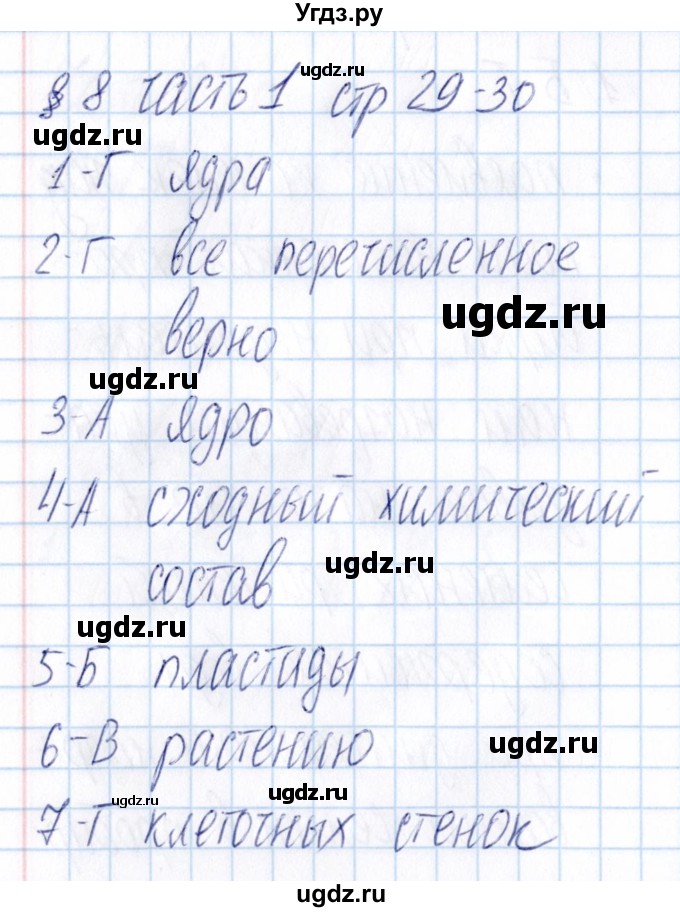 Угдз.ру
§ 8 часть 1 стр 29-30
ugdz.ru
ugdz.ru
1-Г ядра
2-Г все перечисленное
верно
ugdz.ru
ugdz.ru
3-А ядро
4-А сходный химический
состав
ugdz.ru
ugdz.ru
5-Б пластиды
6-В растению
ugdz.ru
ugdz.ru
ugdz.ru
7-Г клеточных стенок
ugdz.ru